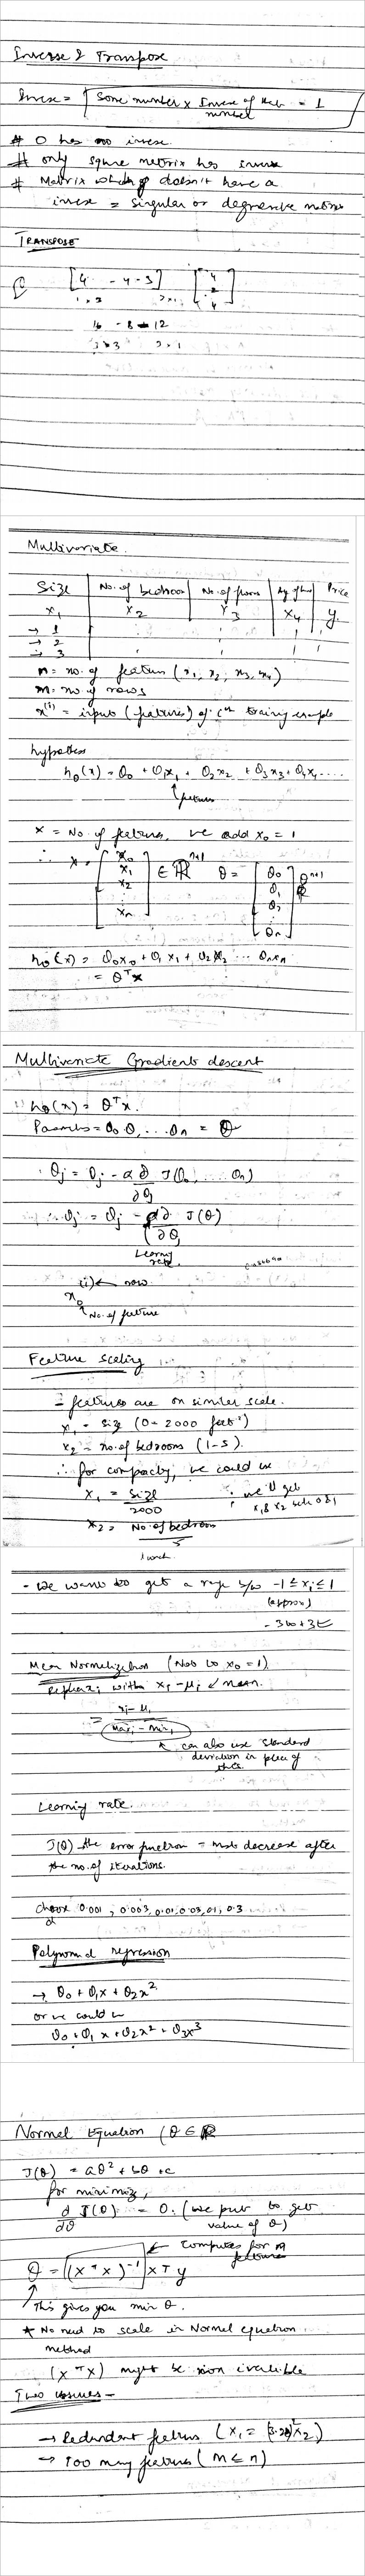 Inverse & Transpose
Inverse = Some number x Inverse of that number = 1
# 0 has no inverse
# only square metrix has inverse
# Matrix which doesn't have a
inverse = singular or degenerate matrix
TRANSPOSE
[4 -4 -3] [4 2 4]
16 -8 -12
Multivariate.
Size No. of bedroom No. of floors Age of home Price
x1 x2 x3 x4 y.
→ 1
→ 2
→ 3
n = no. of features (x1, x2, x3, x4)
m = no. of rows
x(i) = inputs (features) of ith training example
hypothesis
hθ(x) = θ0 + θ1x1 + θ2x2 + θ3x3 + θ4x4 ....
features
x = No. of features, we add x0 = 1
∴ x = [x0 x1 x2 : xn] ∈ ℝn+1 θ = [θ0 θ1 θ2 : θn] ℝn+1
hθ(x) = θ0x0 + θ1x1 + θ2x2 ... θnxn
= θTx
Multivariate Gradient descent
∴ hθ(x) = θTx.
Parameters = θ0 θ1 .... θn = θ
∴ θj = θj - α ∂/∂θj J(θ0, .... θn)
∴ θj = θj - α ∂/∂θj J(θ)
Learning rate.
(i) ← row
x0
No. of feature
Feature scaling
- features are on similar scale.
x1 = size (0 - 2000 feet2)
x2 = no. of bedrooms (1-5).
∴ for compactly, we could use
x1 = size/2000 ; we'll get x1 & x2 betn 0 & 1
x2 = No. of bedroom/5
- We want to get a range b/w -1 ≤ xi ≤ 1
(approx)
-3 to +3
Mean Normalization (Not to x0 = 1)
Replace xi with xi - μi ← mean.
= xi - μi / maxi - mini
can also use standard
deviation in place of
this.
Learning rate.
J(θ) the error function - must decrease after
the no. of iterations.
Choose α 0.001, 0.003, 0.01, 0.03, 0.1, 0.3
Polynomial regression
→ θ0 + θ1x + θ2x2
or we could use
θ0 + θ1x + θ2x2 + θ3x3
Normal Equation (θ ∈ ℝ
J(θ) = aθ2 + bθ + c
for minimiz,
d/dθ J(θ) = 0. (we put to get
value of θ)
Computes for n features
θ = (XTX)-1 XTy
This gives you min θ.
* No need to scale in Normal equation
method
(XTX) might be non invertible
Two issues -
→ Redundant features (x1 = (3.28)2 x2)
→ Too many features (m ≤ n)